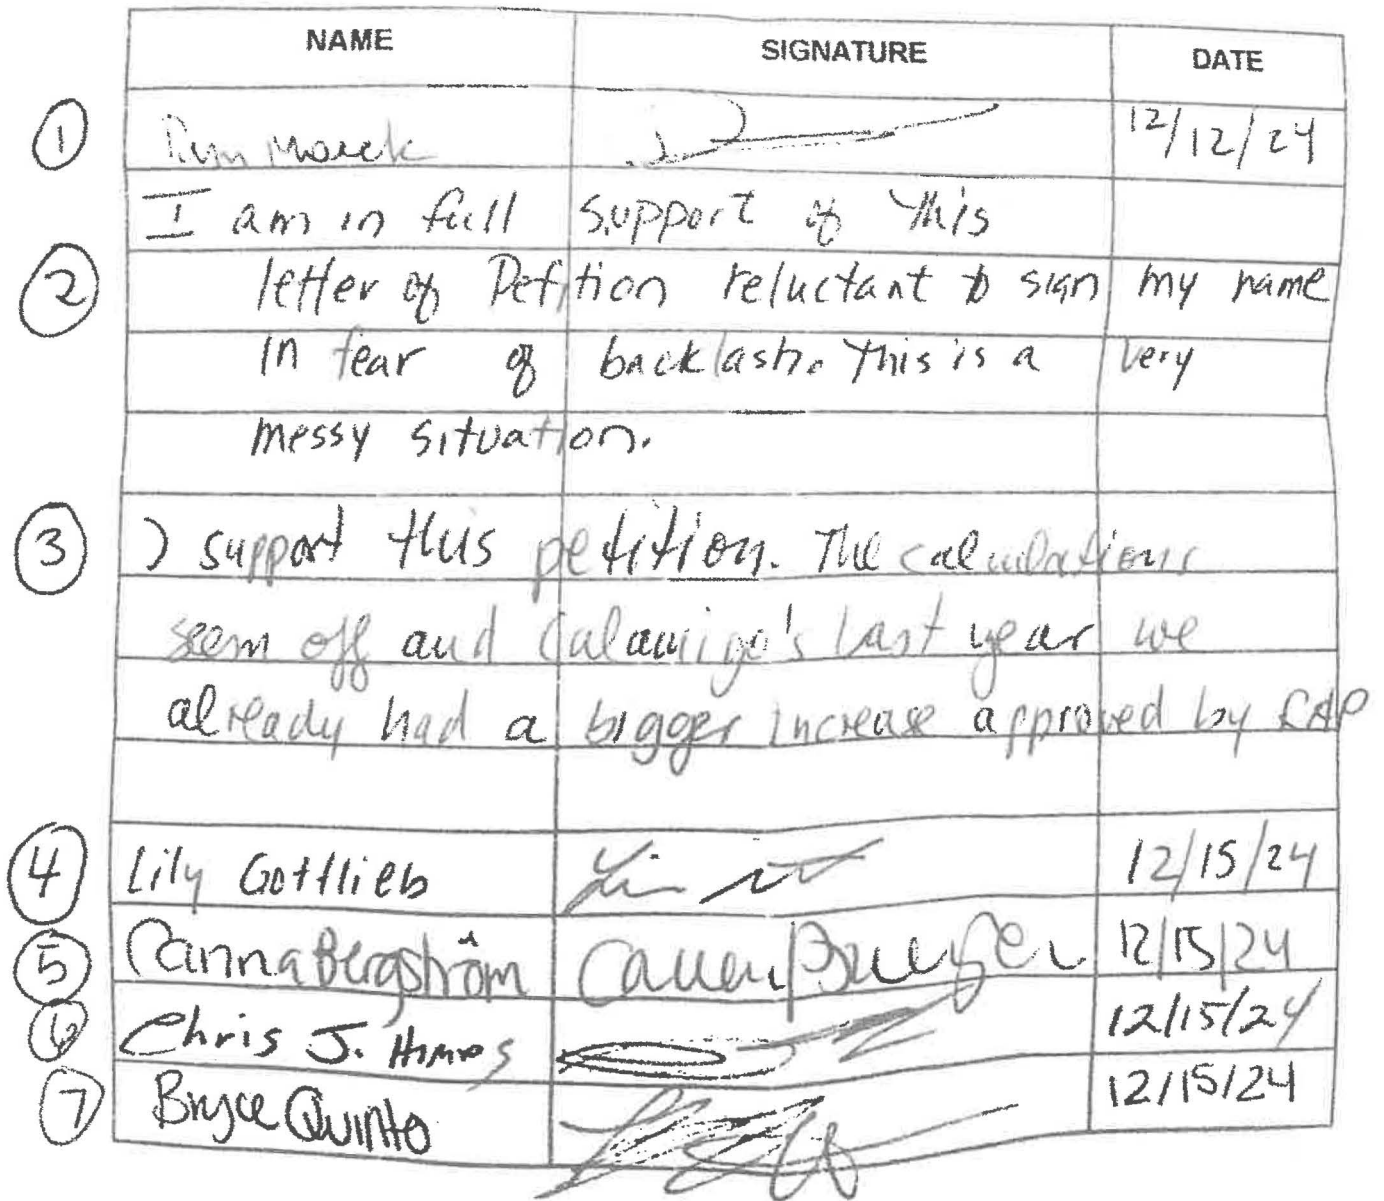 NAME SIGNATURE DATE
1 Marek 12/12/24
I am in full support of this
2 letter of Petition reluctant to sign my name
in fear of backlash. This is a very
messy situation.
3 I support this petition. The calculations
seem off and Calamigo's last year we
already had a bigger increase approved by RAP
4 Lily Gottlieb 12/15/24
5 Canna Bergström 12/15/24
6 Chris J. 12/15/24
7 Bryce Quinto 12/15/24